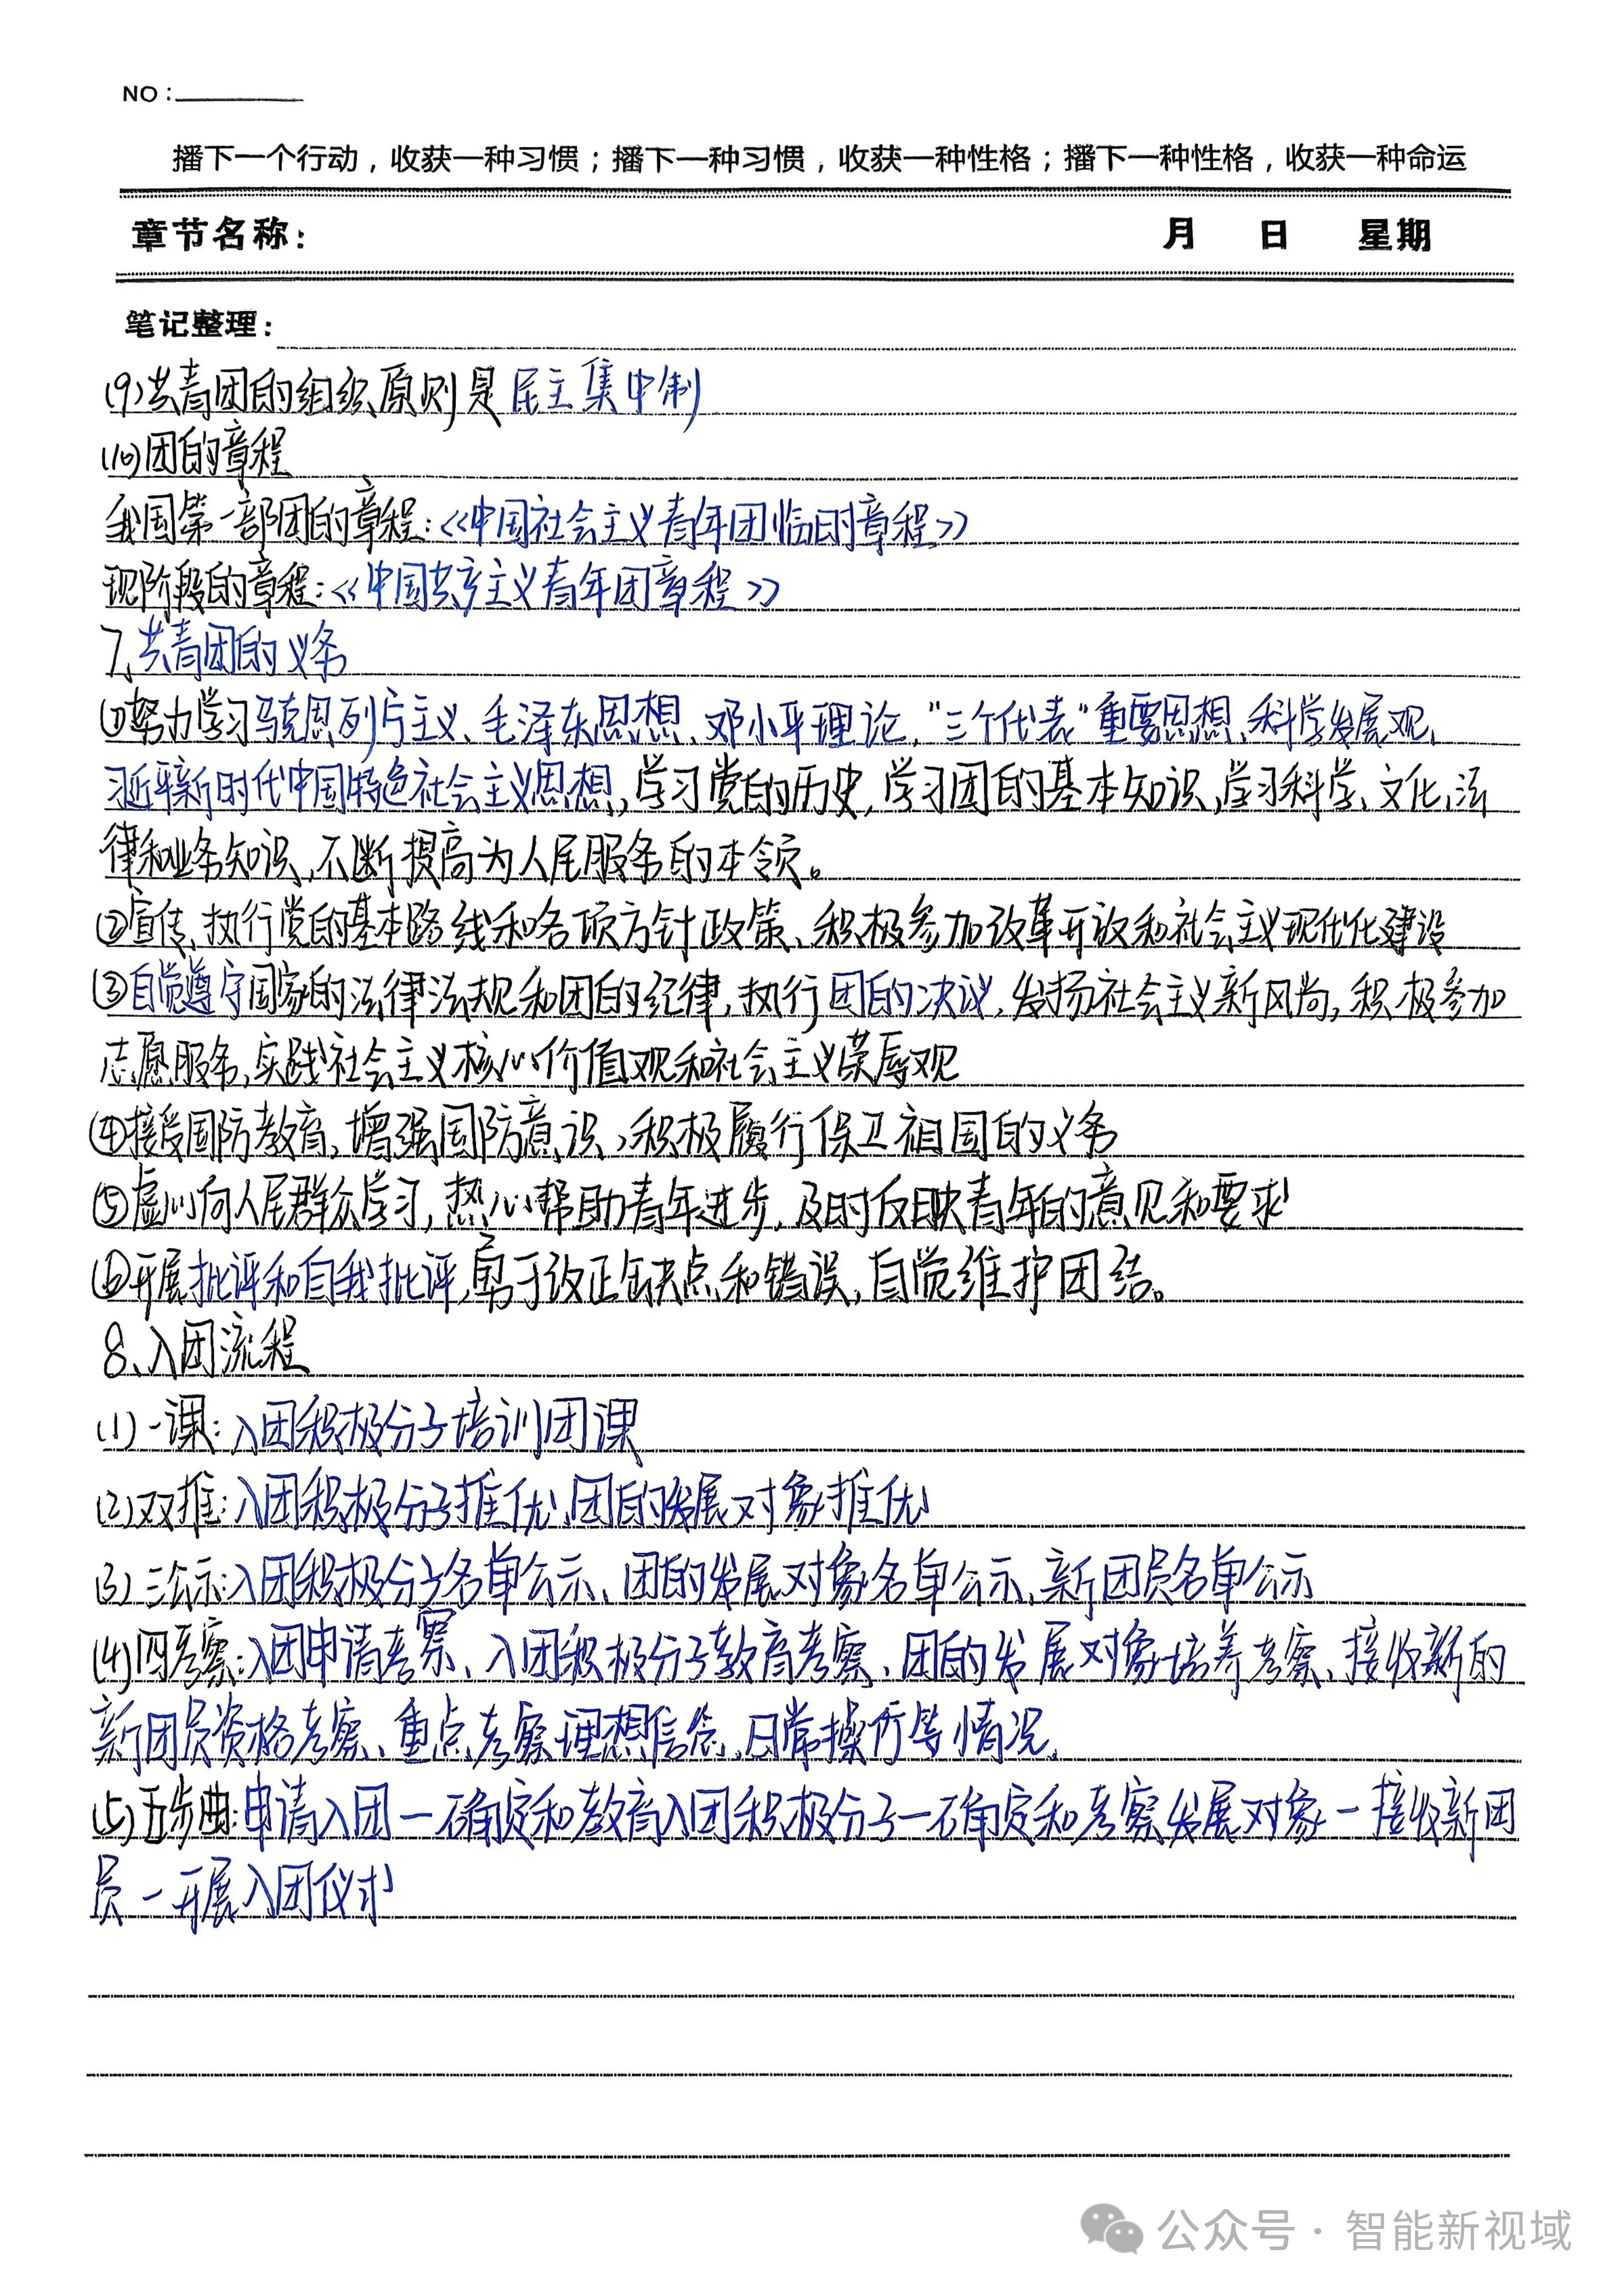 NO：
播下一个行动，收获一种习惯；播下一种习惯，收获一种性格；播下一种性格，收获一种命运
章节名称： 月 日 星期
笔记整理：
(9)共青团的组织原则是民主集中制
(10)团的章程
我国第一部团的章程：《中国社会主义青年团临时章程》
现阶段的章程：《中国共产主义青年团章程》
7、共青团的义务
①努力学习马克思列宁主义、毛泽东思想、邓小平理论、“三个代表”重要思想、科学发展观、
习近平新时代中国特色社会主义思想，学习党的历史，学习团的基本知识，学习科学、文化、法
律和业务知识，不断提高为人民服务的本领。
②宣传、执行党的基本路线和各项方针政策、积极参加改革开放和社会主义现代化建设
③自觉遵守国家的法律法规和团的纪律，执行团的决议，发扬社会主义新风尚，积极参加
志愿服务，实践社会主义核心价值观和社会主义荣辱观
④接受国防教育，增强国防意识，积极履行保卫祖国的义务
⑤虚心向人民群众学习，热心帮助青年进步，及时反映青年的意见和要求
⑥开展批评和自我批评，勇于改正缺点和错误，自觉维护团结。
8、入团流程
(1)一课：入团积极分子培训团课
(2)双推：入团积极分子推优、团的发展对象推优
(3)三公示：入团积极分子名单公示、团的发展对象名单公示、新团员名单公示
(4)四考察：入团申请考察、入团积极分子教育考察、团的发展对象培养考察、接收新的
新团员资格考察、重点考察理想信念、日常操行等情况、
(5)五步曲：申请入团一确定和教育入团积极分子一确定和考察发展对象一接收新团
员一开展入团仪式
公众号·智能新视域